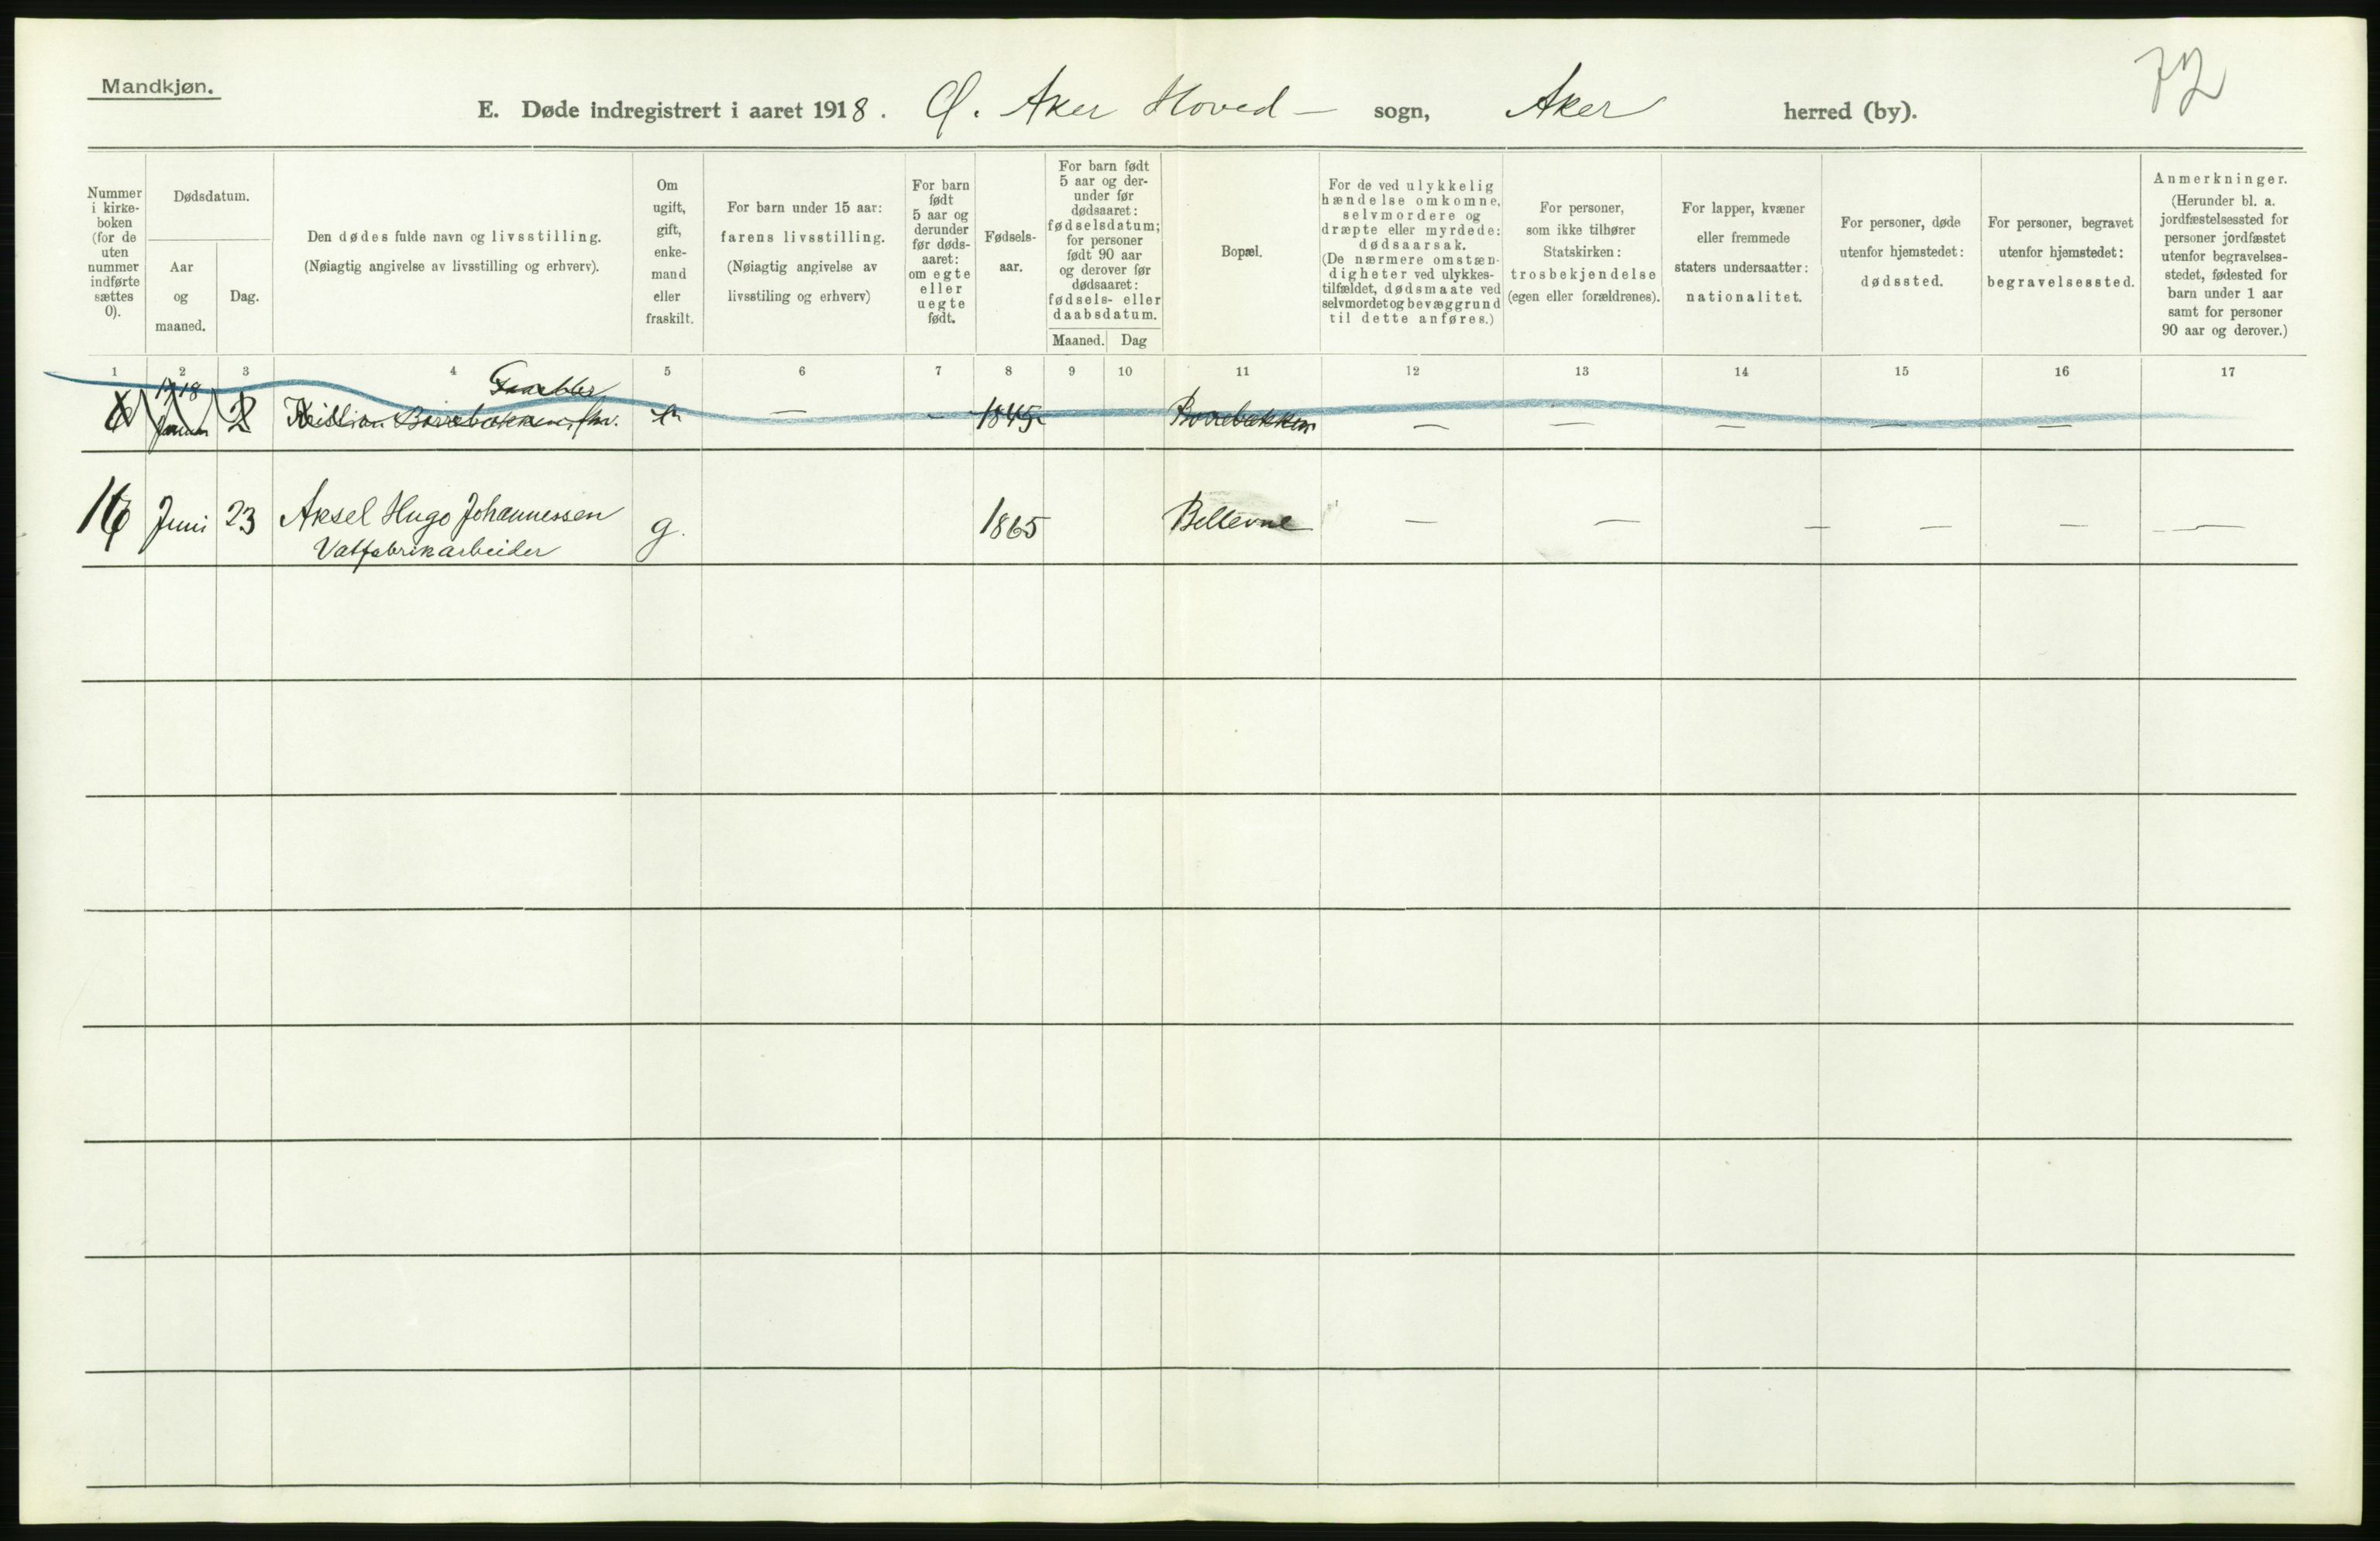 Mandkjøn.
72
E. Døde indregistrert i aaret 1918. Ø. Aker Hoved- sogn, Aker herred (by).
Nummer i kirke-boken (for de uten nummer indførte sættes 0).
Dødsdatum.
Aar og maaned.
Dag.
Den dødes fulde navn og livsstilling.
(Nøiagtig angivelse av livsstilling og erhverv).
Om ugift, gift, enke-mand eller fraskilt.
For barn under 15 aar:
farens livsstilling.
(Nøiagtig angivelse av livsstiling og erhverv)
For barn født 5 aar og derunder før døds-aaret: om egte eller uegte født.
Fødsels-aar.
For barn født 5 aar og der-under før dødsaaret: fødselsdatum; for personer født 90 aar og derover før dødsaaret: fødsels- eller daabsdatum.
Maaned. Dag
Bopæl.
For de ved ulykkelig hændelse omkomne, selvmordere og dræpte eller myrdede: dødsaarsak.
(De nærmere omstæn-digheter ved ulykkes-tilfældet, dødsmaate ved selvmordet og bevæggrund til dette anføres.)
For personer, som ikke tilhører Statskirken: trosbekjendelse (egen eller forældrenes).
For lapper, kvæner eller fremmede staters undersaatter: nationalitet.
For personer, døde utenfor hjemstedet: dødssted.
For personer, begravet utenfor hjemstedet: begravelsessted.
Anmerkninger.
(Herunder bl. a. jordfæstelsessted for personer jordfæstet utenfor begravelses-stedet, fødested for barn under 1 aar samt for personer 90 aar og derover.)
1 2 3 4 5 6 7 8 9 10 11 12 13 14 15 16 17
1918
2 Kristian 1845
16 Juni 23 Aksel Hugo Johannessen g. 1865 Bellevue — — — — — —
Vatfabrikarbeider